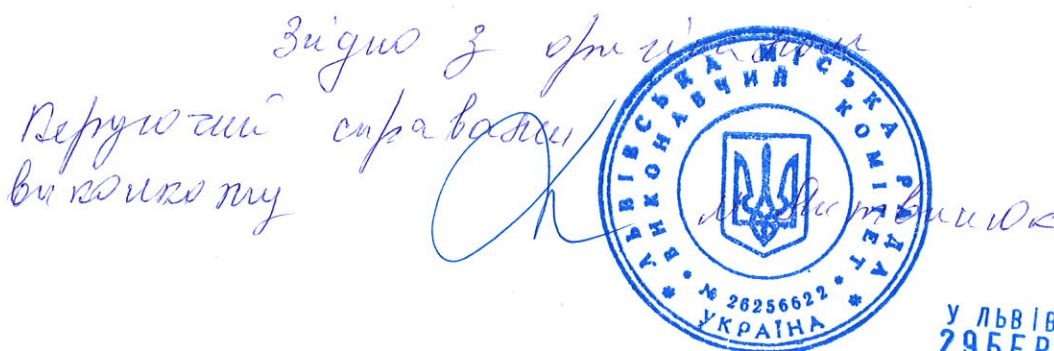 Згідно з оригіналом
Керуючий справами
виконкому
М. Литвинюк
ЛЬВІВСЬКА МІСЬКА РАДА
ВИКОНАВЧИЙ КОМІТЕТ
№ 26256622
УКРАЇНА
У ЛЬВІВ
29БЕР